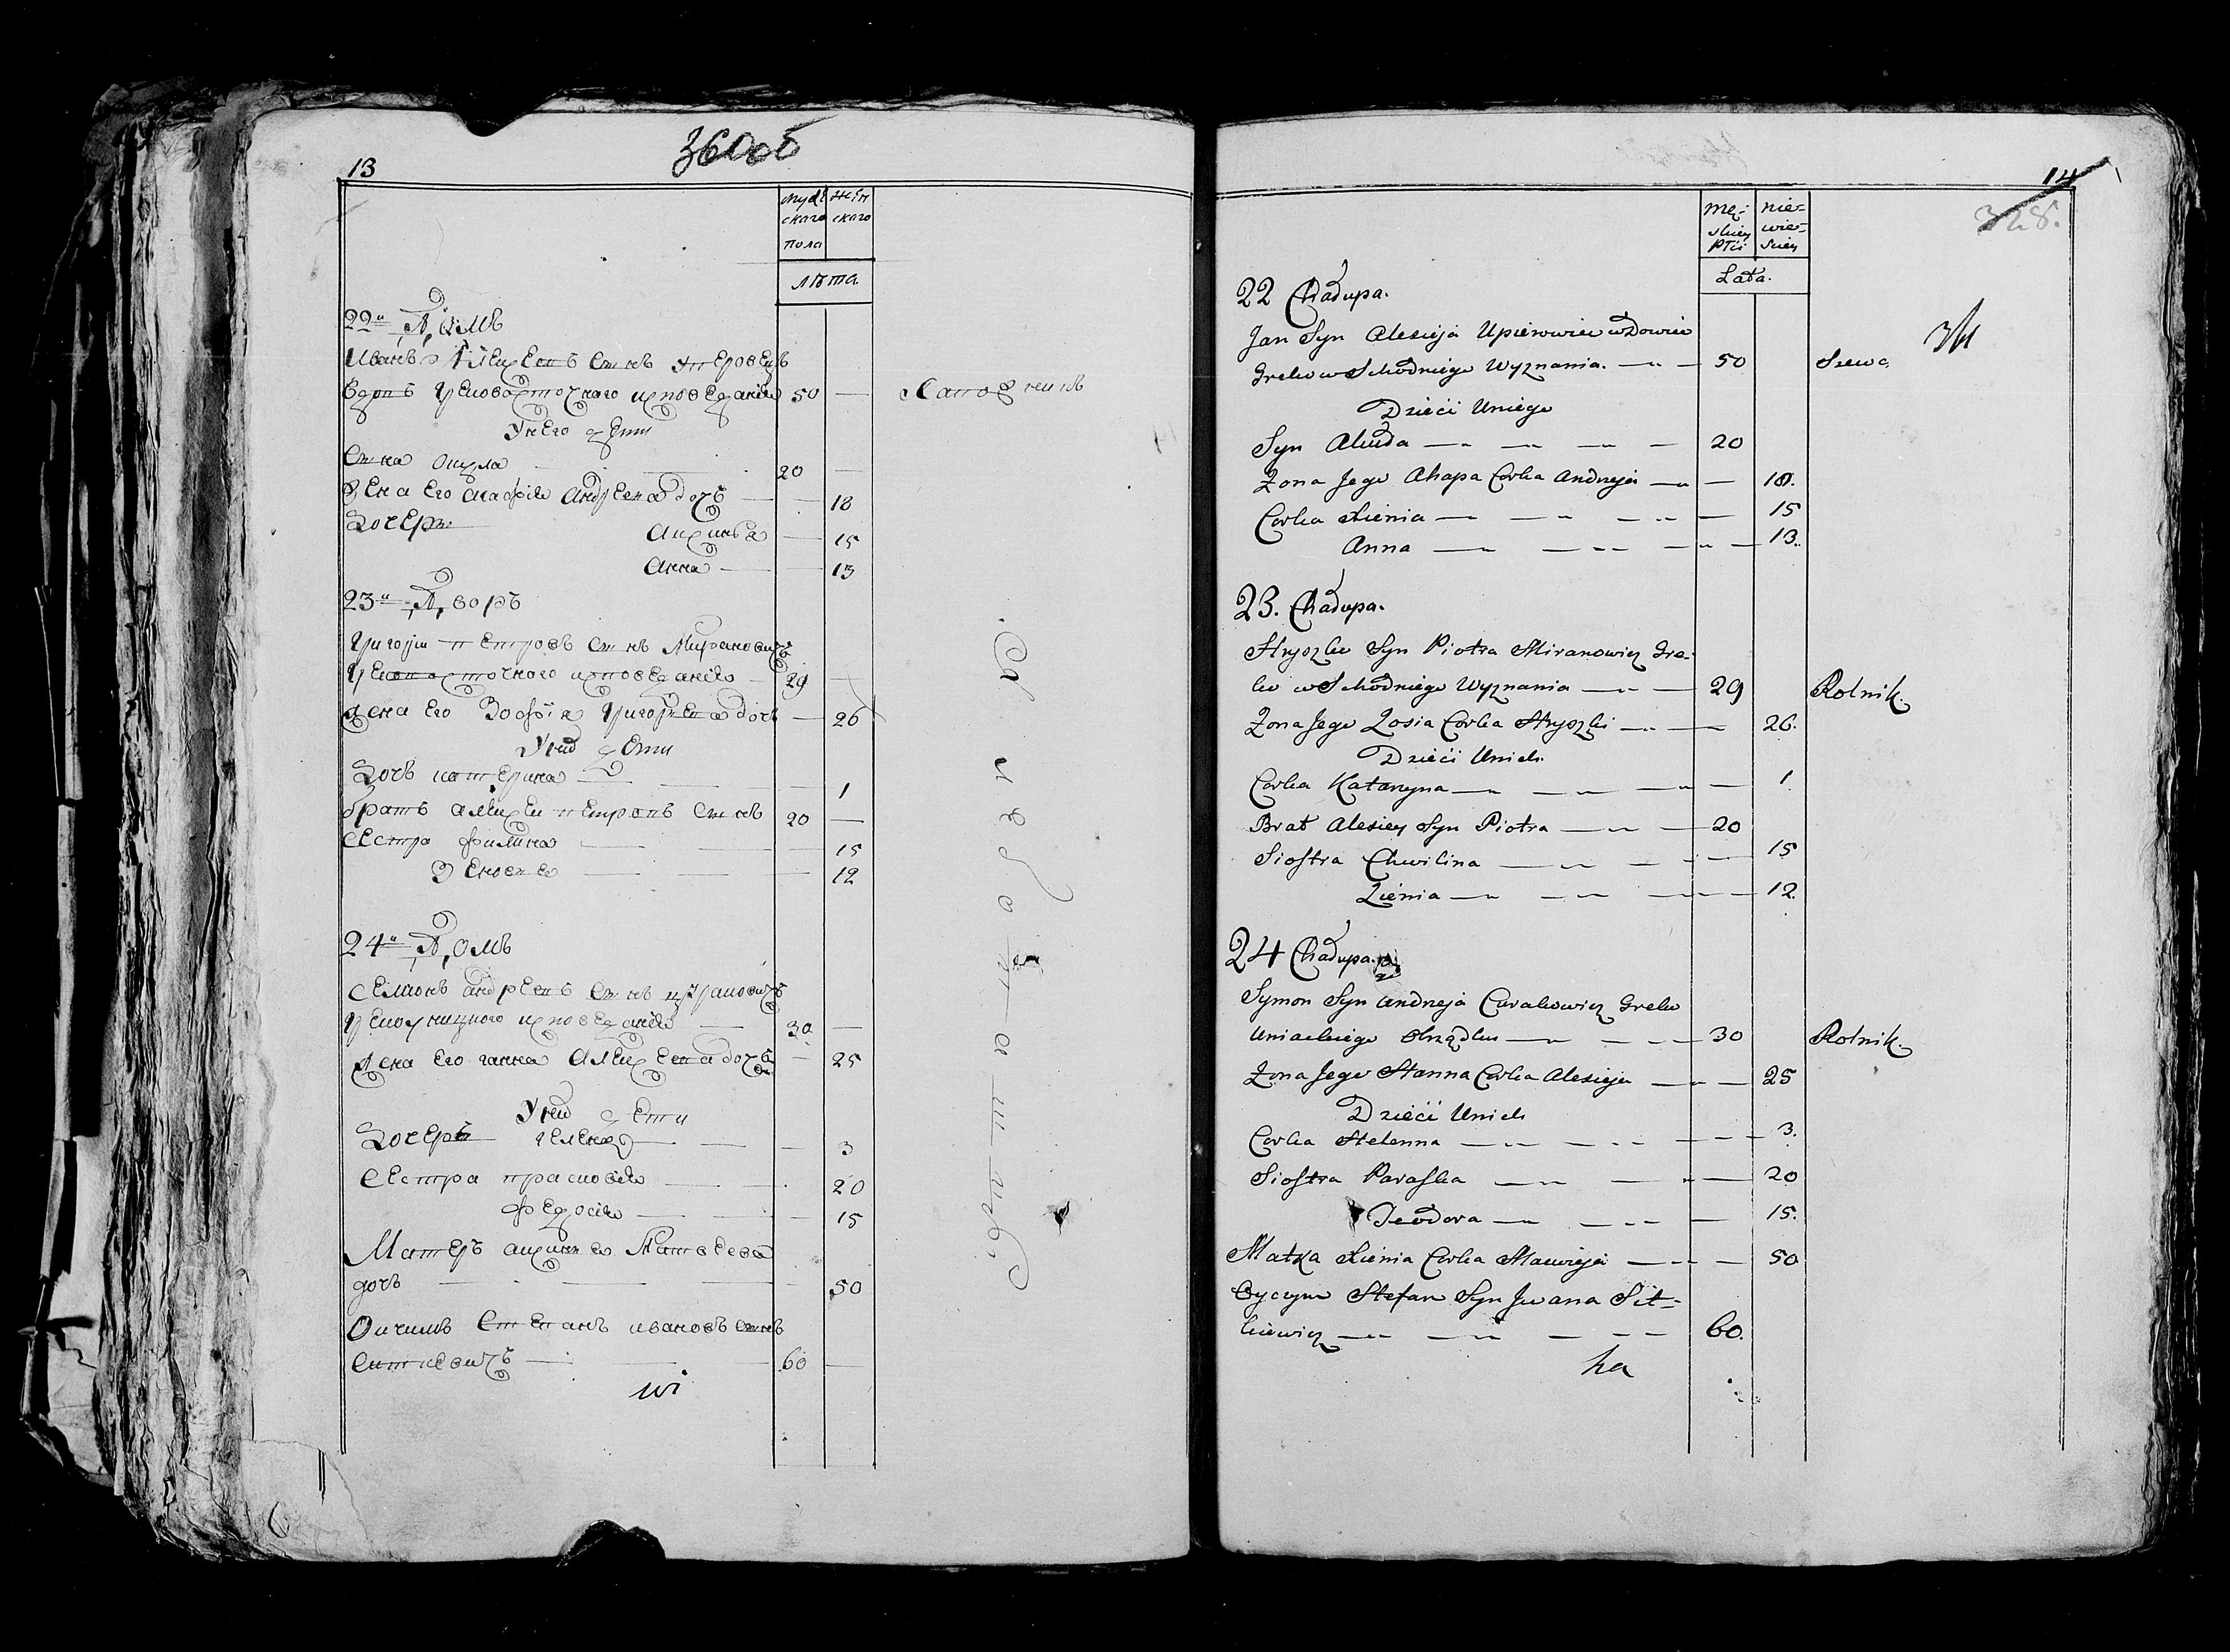 13
360об
муже
ского
пола
жен
ского
лѣта
22й Домъ
Иванъ Алексеевъ сынъ Уперовецъ
вдовъ Грековосточного исповеданія 50 —
Сапожникъ
У него дети
Сына Окула 20 —
Жена Его Агафія Андреева дочь — 18
Дочери Аксинья — 15
Анна — 13
23й Дворъ
Григори Петровъ сынъ Мирановичъ
Грековосточного исповеданія 29 —
Жена Его Зофія Григорьева дочь — 26
У них дети
Дочь Катерина — 1
братъ Алексеи Петровъ сынъ 20 —
сестра Филина — 15
Зеновья — 12
24й Домъ
Семионъ Андреевъ сынъ Цураковичъ
Грекоуницкого исповеданія — 30 —
Жена Его Ганна Алексеева дочь — 25
У них дети
Дочерь Гелена — 3
Сестра Прасковія — 20
Федосія — 15
Матерь Аксинья Матвеева
дочь — 50
Отчимъ Степанъ Ивановъ сынъ
Ситкевичъ — 60 —
14
328.
361
męz-
skiey
Płci
nie-
wie-
sciey
Lata.
22 Chałupa.
Jan Syn Alesieja Upierowiec wdowiec
Greko wschodniego Wyznania. — 50 Szewc
Dzieci Uniego
Syn Akuda — 20
Zona Jego Ahapa Corka Andrzeja — 18.
Corka Xienia — 15
Anna — 13.
23. Chałupa.
Hryszko Syn Piotra Miranowicz Gre-
ko wschodniego Wyznania — 29 Rolnik.
Zona Jego Zosia Corka Hryszki — 26.
Dzieci Unich
Corka Katarzyna — 1
Brat Alesiey Syn Piotra — 20
Siostra Chwilina — 15
Zienia — 12.
24 Chałupa.
Symon Syn Andrzeja Curakowicz Greko
Uniackiego Obrządku — 30 Rolnik.
Zona Jego Hanna Corka Alesieja — 25
Dzieci Unich
Corka Helenna — 3.
Siostra Paraska — 20
Teodora — 15.
Matka Xienia Corka Macwieja — 50
Oyczym Stefan Syn Jwana Sit-
kiewicz — 60.
ka